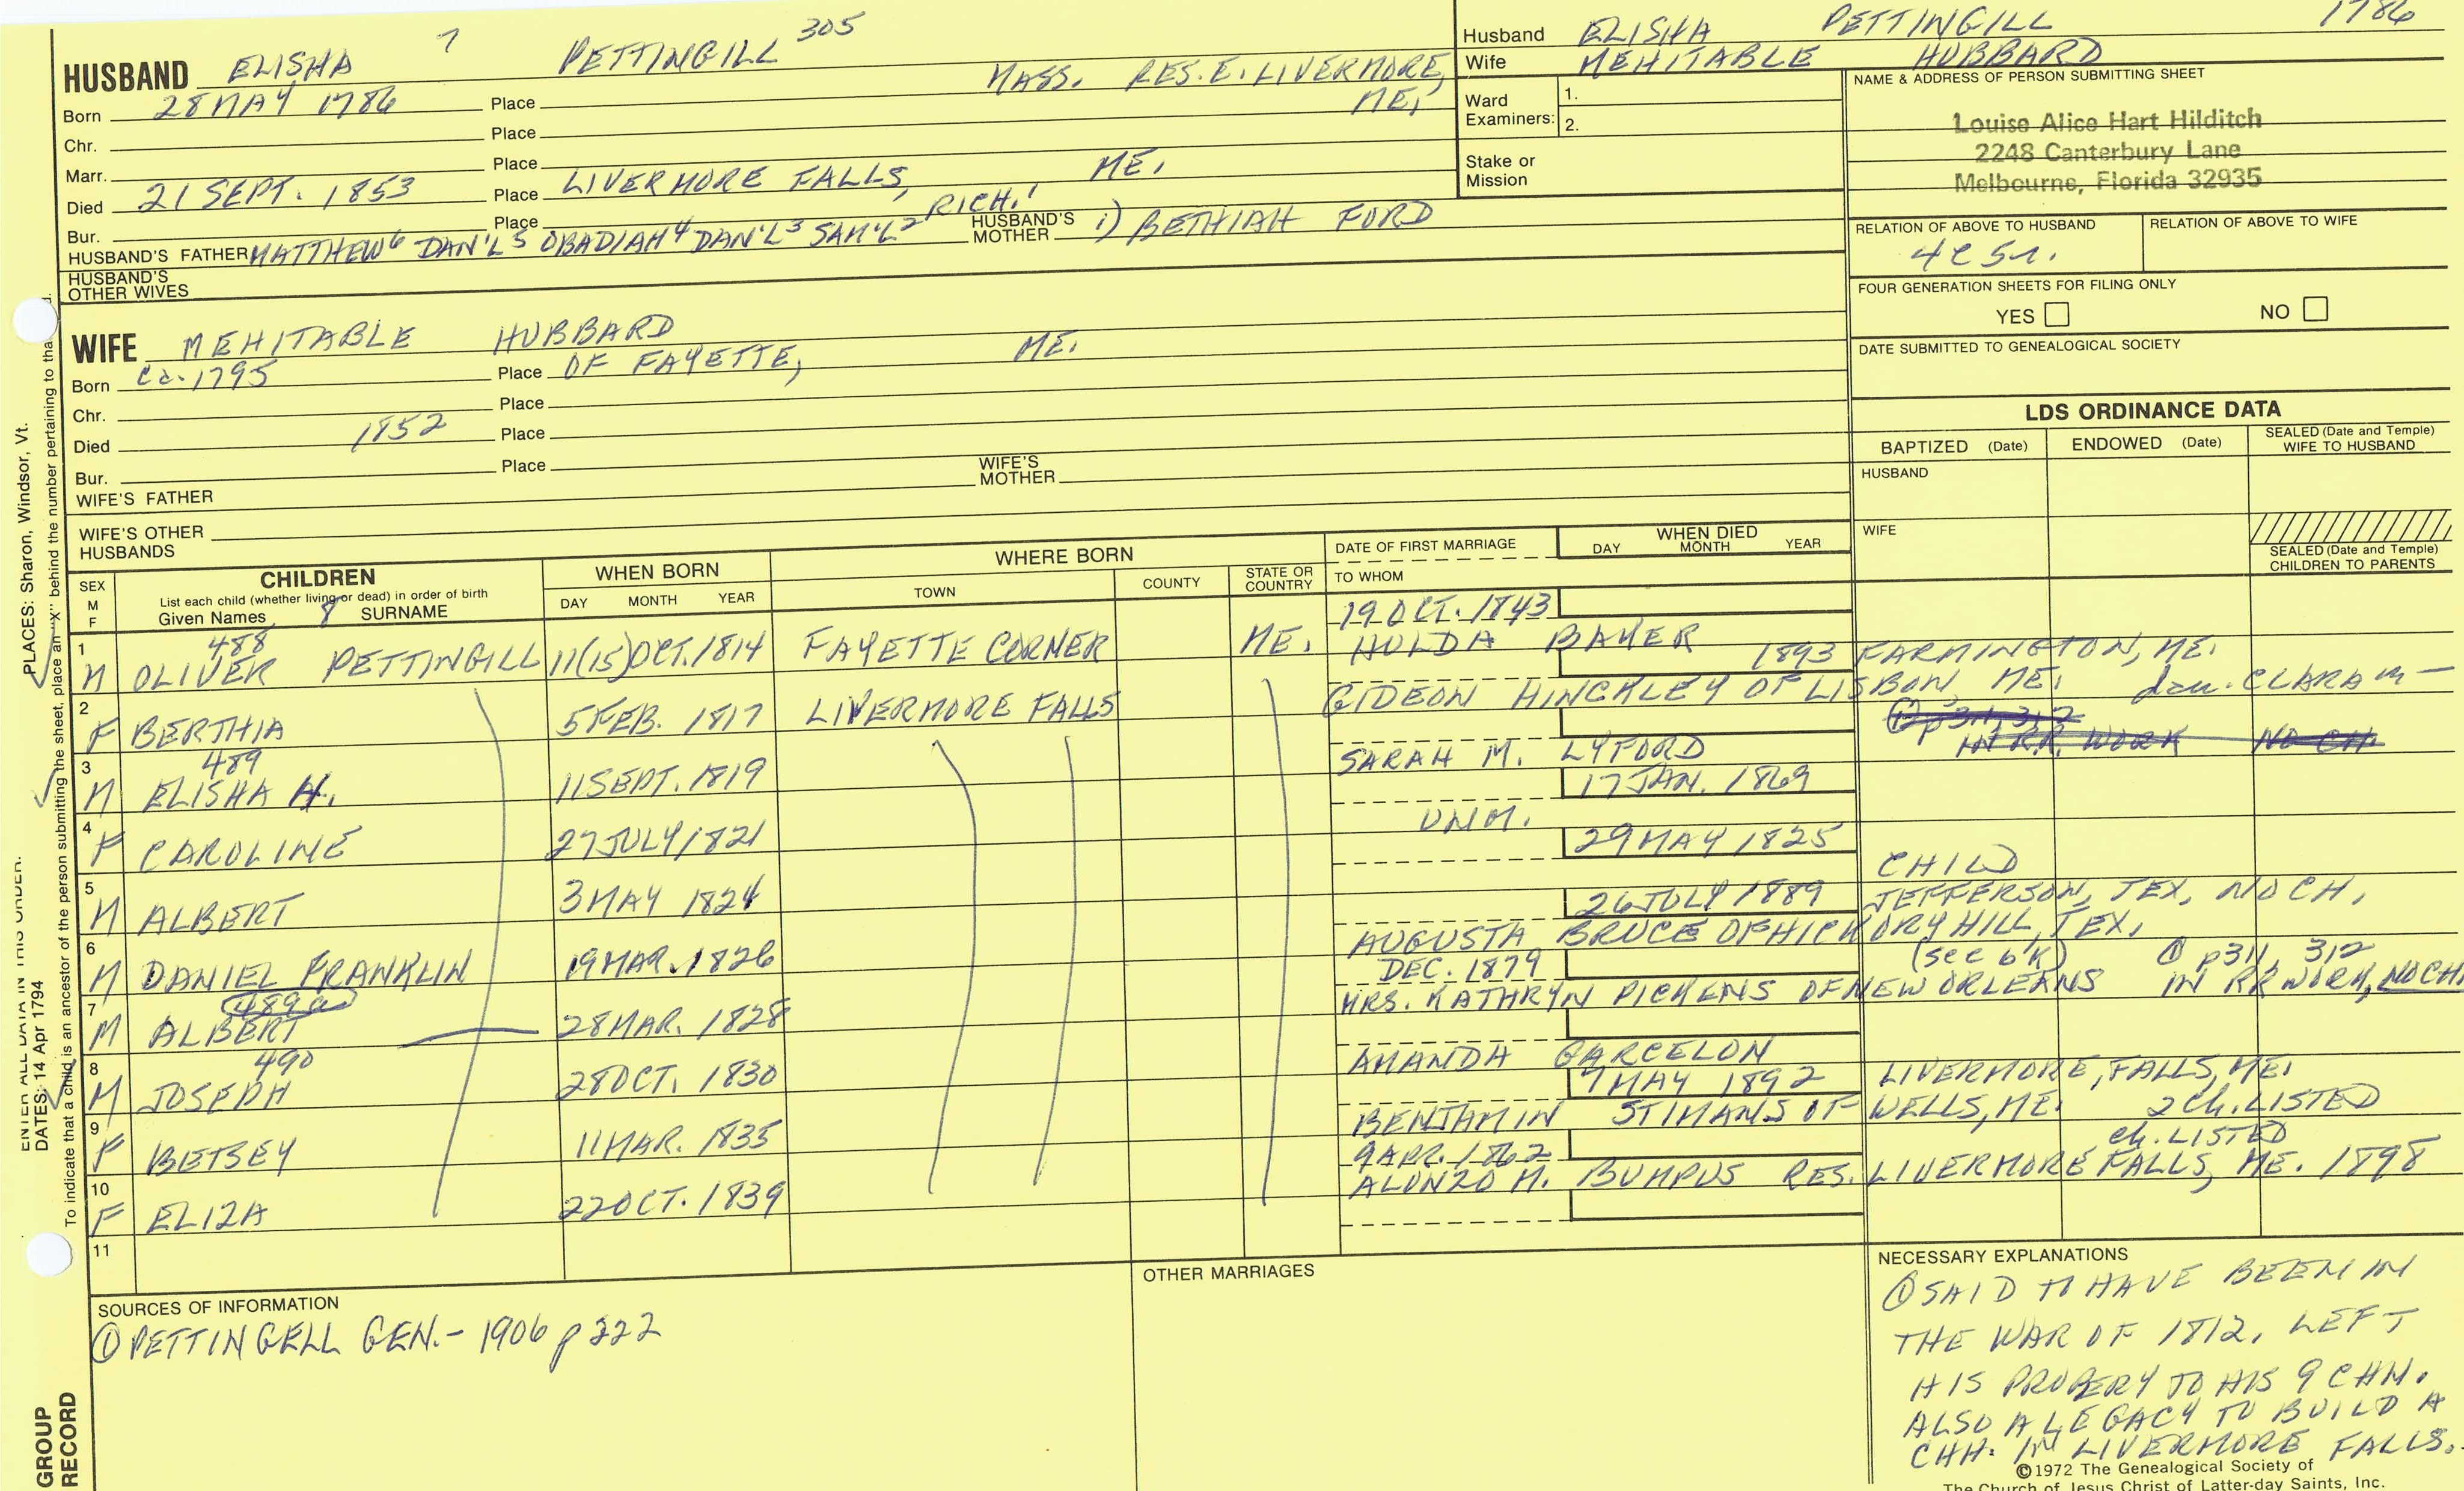 HUSBAND ELISHA 7 PETTINGILL 305
Born 28 MAY 1786 Place MASS. RES. E. LIVERMORE, ME,
Chr. Place
Marr. Place
Died 21 SEPT. 1853 Place LIVERMORE FALLS, ME.
Bur. Place
HUSBAND'S FATHER MATTHEW6 DAN'L5 OBADIAH4 DAN'L3 SAM'L2 RICH.1 HUSBAND'S MOTHER 1) BETHIAH FORD
HUSBAND'S OTHER WIVES
WIFE MEHITABLE HUBBARD
Born ca. 1795 Place OF FAYETTE, ME.
Chr. Place
Died 1852 Place
Bur. Place
WIFE'S FATHER WIFE'S MOTHER
WIFE'S OTHER HUSBANDS
Husband ELISHA PETTINGILL 1786
Wife MEHITABLE HUBBARD
Ward Examiners: 1.
2.
Stake or Mission
NAME & ADDRESS OF PERSON SUBMITTING SHEET
Louise Alice Hart Hilditch
2248 Canterbury Lane
Melbourne, Florida 32935
RELATION OF ABOVE TO HUSBAND RELATION OF ABOVE TO WIFE
4C5r.
FOUR GENERATION SHEETS FOR FILING ONLY
YES NO
DATE SUBMITTED TO GENEALOGICAL SOCIETY
LDS ORDINANCE DATA
BAPTIZED (Date) ENDOWED (Date) SEALED (Date and Temple) WIFE TO HUSBAND
HUSBAND
WIFE
SEALED (Date and Temple) CHILDREN TO PARENTS
SEX M F
CHILDREN
List each child (whether living or dead) in order of birth
Given Names 8 SURNAME
WHEN BORN
DAY MONTH YEAR
WHERE BORN
TOWN COUNTY STATE OR COUNTRY
DATE OF FIRST MARRIAGE
TO WHOM
WHEN DIED
DAY MONTH YEAR
1 M 488 OLIVER PETTINGILL 11(15)OCT. 1814 FAYETTE CORNER ME. 19 OCT. 1843
HULDA BAKER 1893 FARMINGTON, ME.
2 F BERTHIA 5 FEB. 1817 LIVERMORE FALLS GIDEON HINCKLEY OF LISBON, ME. dau. CLARA m—
① p311, 312
IN R.R. WORK NO CH.
3 M 489 ELISHA H. 11 SEPT. 1819 SARAH M. LYFORD
17 JAN. 1869
4 F CAROLINE 27 JULY 1821 UNM.
29 MAY 1825 CHILD
5 M ALBERT 3 MAY 1824
26 JULY 1889 JEFFERSON, TEX, NO CH.
6 M DANIEL FRANKLIN 19 MAR. 1826 AUGUSTA BRUCE OF HICKORY HILL, TEX.
DEC. 1879 (see b'k) ① p311, 312
7 M 489a ALBERT 28 MAR. 1828 MRS. KATHRYN PICKENS OF NEW ORLEANS IN RR WORK, NO CH.
8 M 490 JOSEPH 28 OCT. 1830 AMANDA GARCELON
7 MAY 1892 LIVERMORE, FALLS, ME.
9 F BETSEY 11 MAR. 1835 BENJAMIN STIMANS OF WELLS, ME. 2 Ch. LISTED
9 APR. 1862 ch. LISTED
10 F ELIZA 22 OCT. 1839 ALONZO M. BUMPUS RES. LIVERMORE FALLS, ME. 1898
11
SOURCES OF INFORMATION
① PETTINGELL GEN.- 1906 p 222
OTHER MARRIAGES
NECESSARY EXPLANATIONS
① SAID TO HAVE BEEN IN
THE WAR OF 1812. LEFT
HIS PROPERY TO HIS 9 CHN.
ALSO A LEGACY TO BUILD A
CHH. IN LIVERMORE FALLS.
©1972 The Genealogical Society of
The Church of Jesus Christ of Latter-day Saints, Inc.
PLACES: Sharon, Windsor, Vt.
ENTER ALL DATA IN THIS ORDER:
DATES: 14 Apr 1794
To indicate that a child is an ancestor of the person submitting the sheet, place an "X" behind the number pertaining to that
GROUP
RECORD